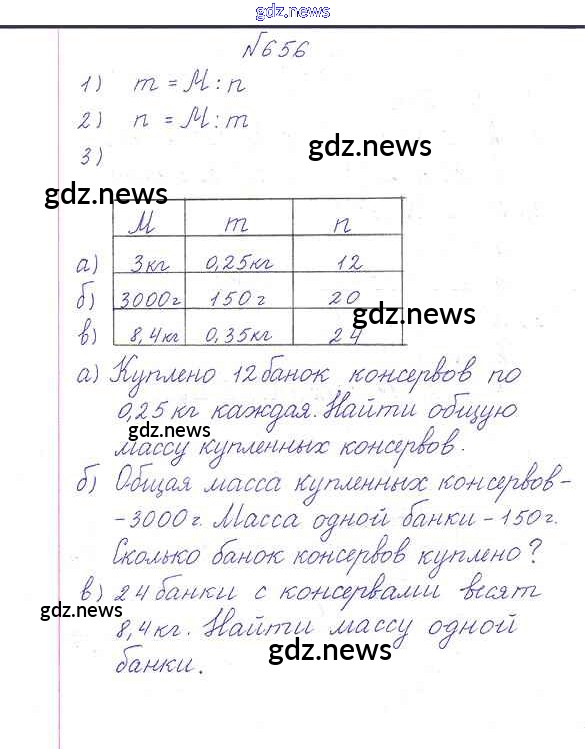 gdz.news
№656
1) m = M : n
2) n = M : m
gdz.news
3)
gdz.news
M m n
а) 3кг 0,25кг 12
б) 3000г 150г 20
gdz.news
в) 8,4кг 0,35кг 24
а) Куплено 12 банок консервов по
0,25 кг каждая. Найти общую
gdz.news
массу купленных консервов.
б) Общая масса купленных консервов-
-3000г. Масса одной банки -150г.
Сколько банок консервов куплено?
в) 24 банки с консервами весят
gdz.news
8,4кг. Найти массу одной
gdz.news
банки.